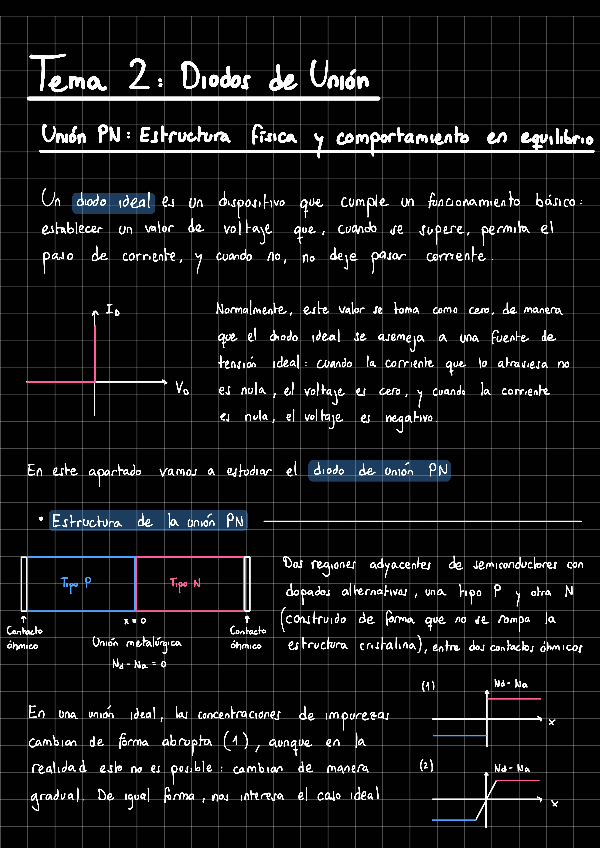 Tema 2: Diodos de Unión
Unión PN: Estructura física y comportamiento en equilibrio
Un diodo ideal es un dispositivo que cumple un funcionamiento básico:
establecer un valor de voltaje que, cuando se supere, permita el
paso de corriente, y cuando no, no deje pasar corriente.
I_D
V_D
Normalmente, este valor se toma como cero, de manera
que el diodo ideal se asemeja a una fuente de
tensión ideal: cuando la corriente que lo atraviesa no
es nula, el voltaje es cero, y cuando la corriente
es nula, el voltaje es negativo.
En este apartado vamos a estudiar el diodo de unión PN
• Estructura de la unión PN
Tipo P
Tipo N
x = 0
Contacto
óhmico
Unión metalúrgica
Nd - Na = 0
Contacto
óhmico
Dos regiones adyacentes de semiconductores con
dopados alternativas, una tipo P y otra N
(construido de forma que no se rompa la
estructura cristalina), entre dos contactos óhmicos
En una unión ideal, las concentraciones de impurezas
cambian de forma abrupta (1), aunque en la
realidad esto no es posible: cambian de manera
gradual. De igual forma, nos interesa el caso ideal
(1)
Nd - Na
x
(2)
Nd - Na
x